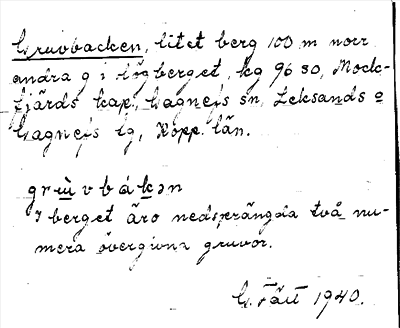 Gruvbacken, litet berg 100 m norr
andra g i Lögberget, kg 96 SO, Mock-
fjärds kap., Gagnefs sn, Leksands o
Gagnefs tg, Kopp. län.
grùvbákən
I berget äro nedsprängda två nu-
mera övergivna gruvor.
G. 1940.